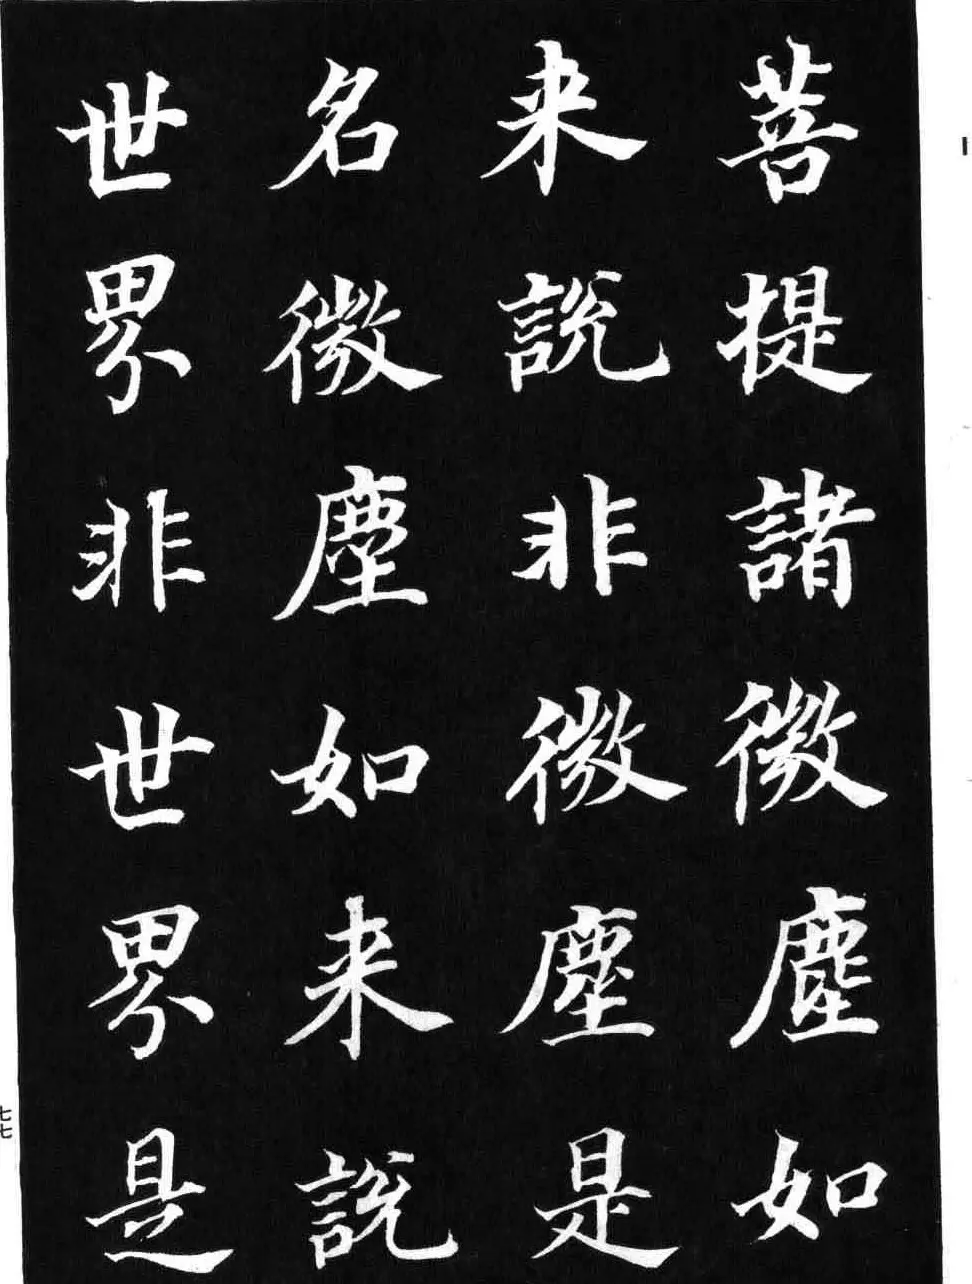 菩提諸微塵如
来說非微塵是
名微塵如来說
世界非世界是
七七